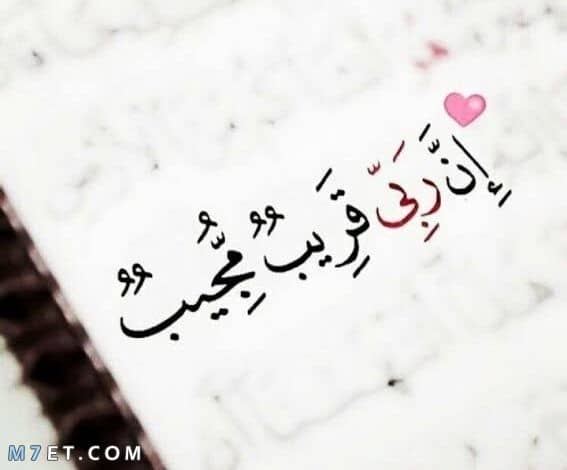 إِنَّ رَبِّي قَرِيبٌ مُّجِيبٌ
M7ET.COM